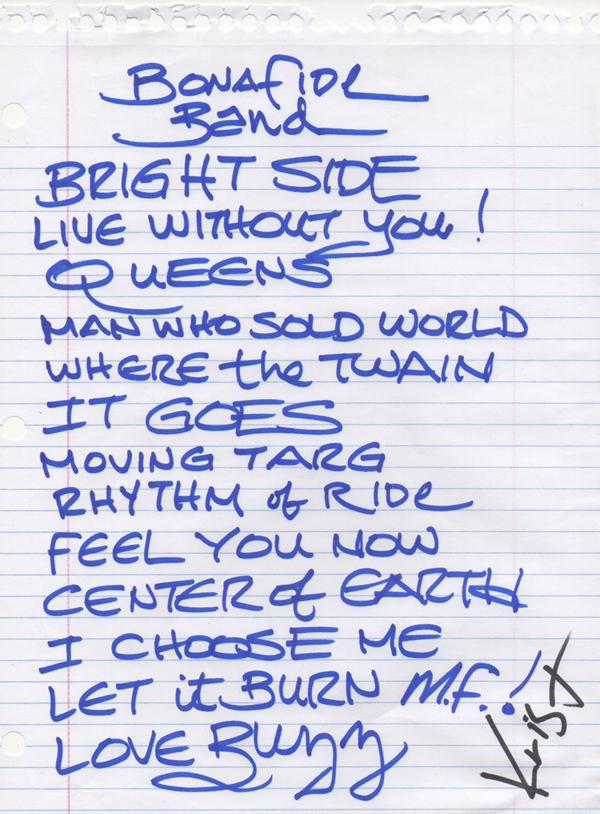 BONAFIDE
BAND
BRIGHT SIDE
LIVE WITHOUT you!
QUEENS
MAN WHO SOLD WORLD
WHERE the TWAIN
IT GOES
MOVING TARG
RHYTHM of RIDE
FEEL YOU NOW
CENTER of EARTH
I CHOOSE ME
LET it BURN M.F.!
LOVE Buzz
Krist